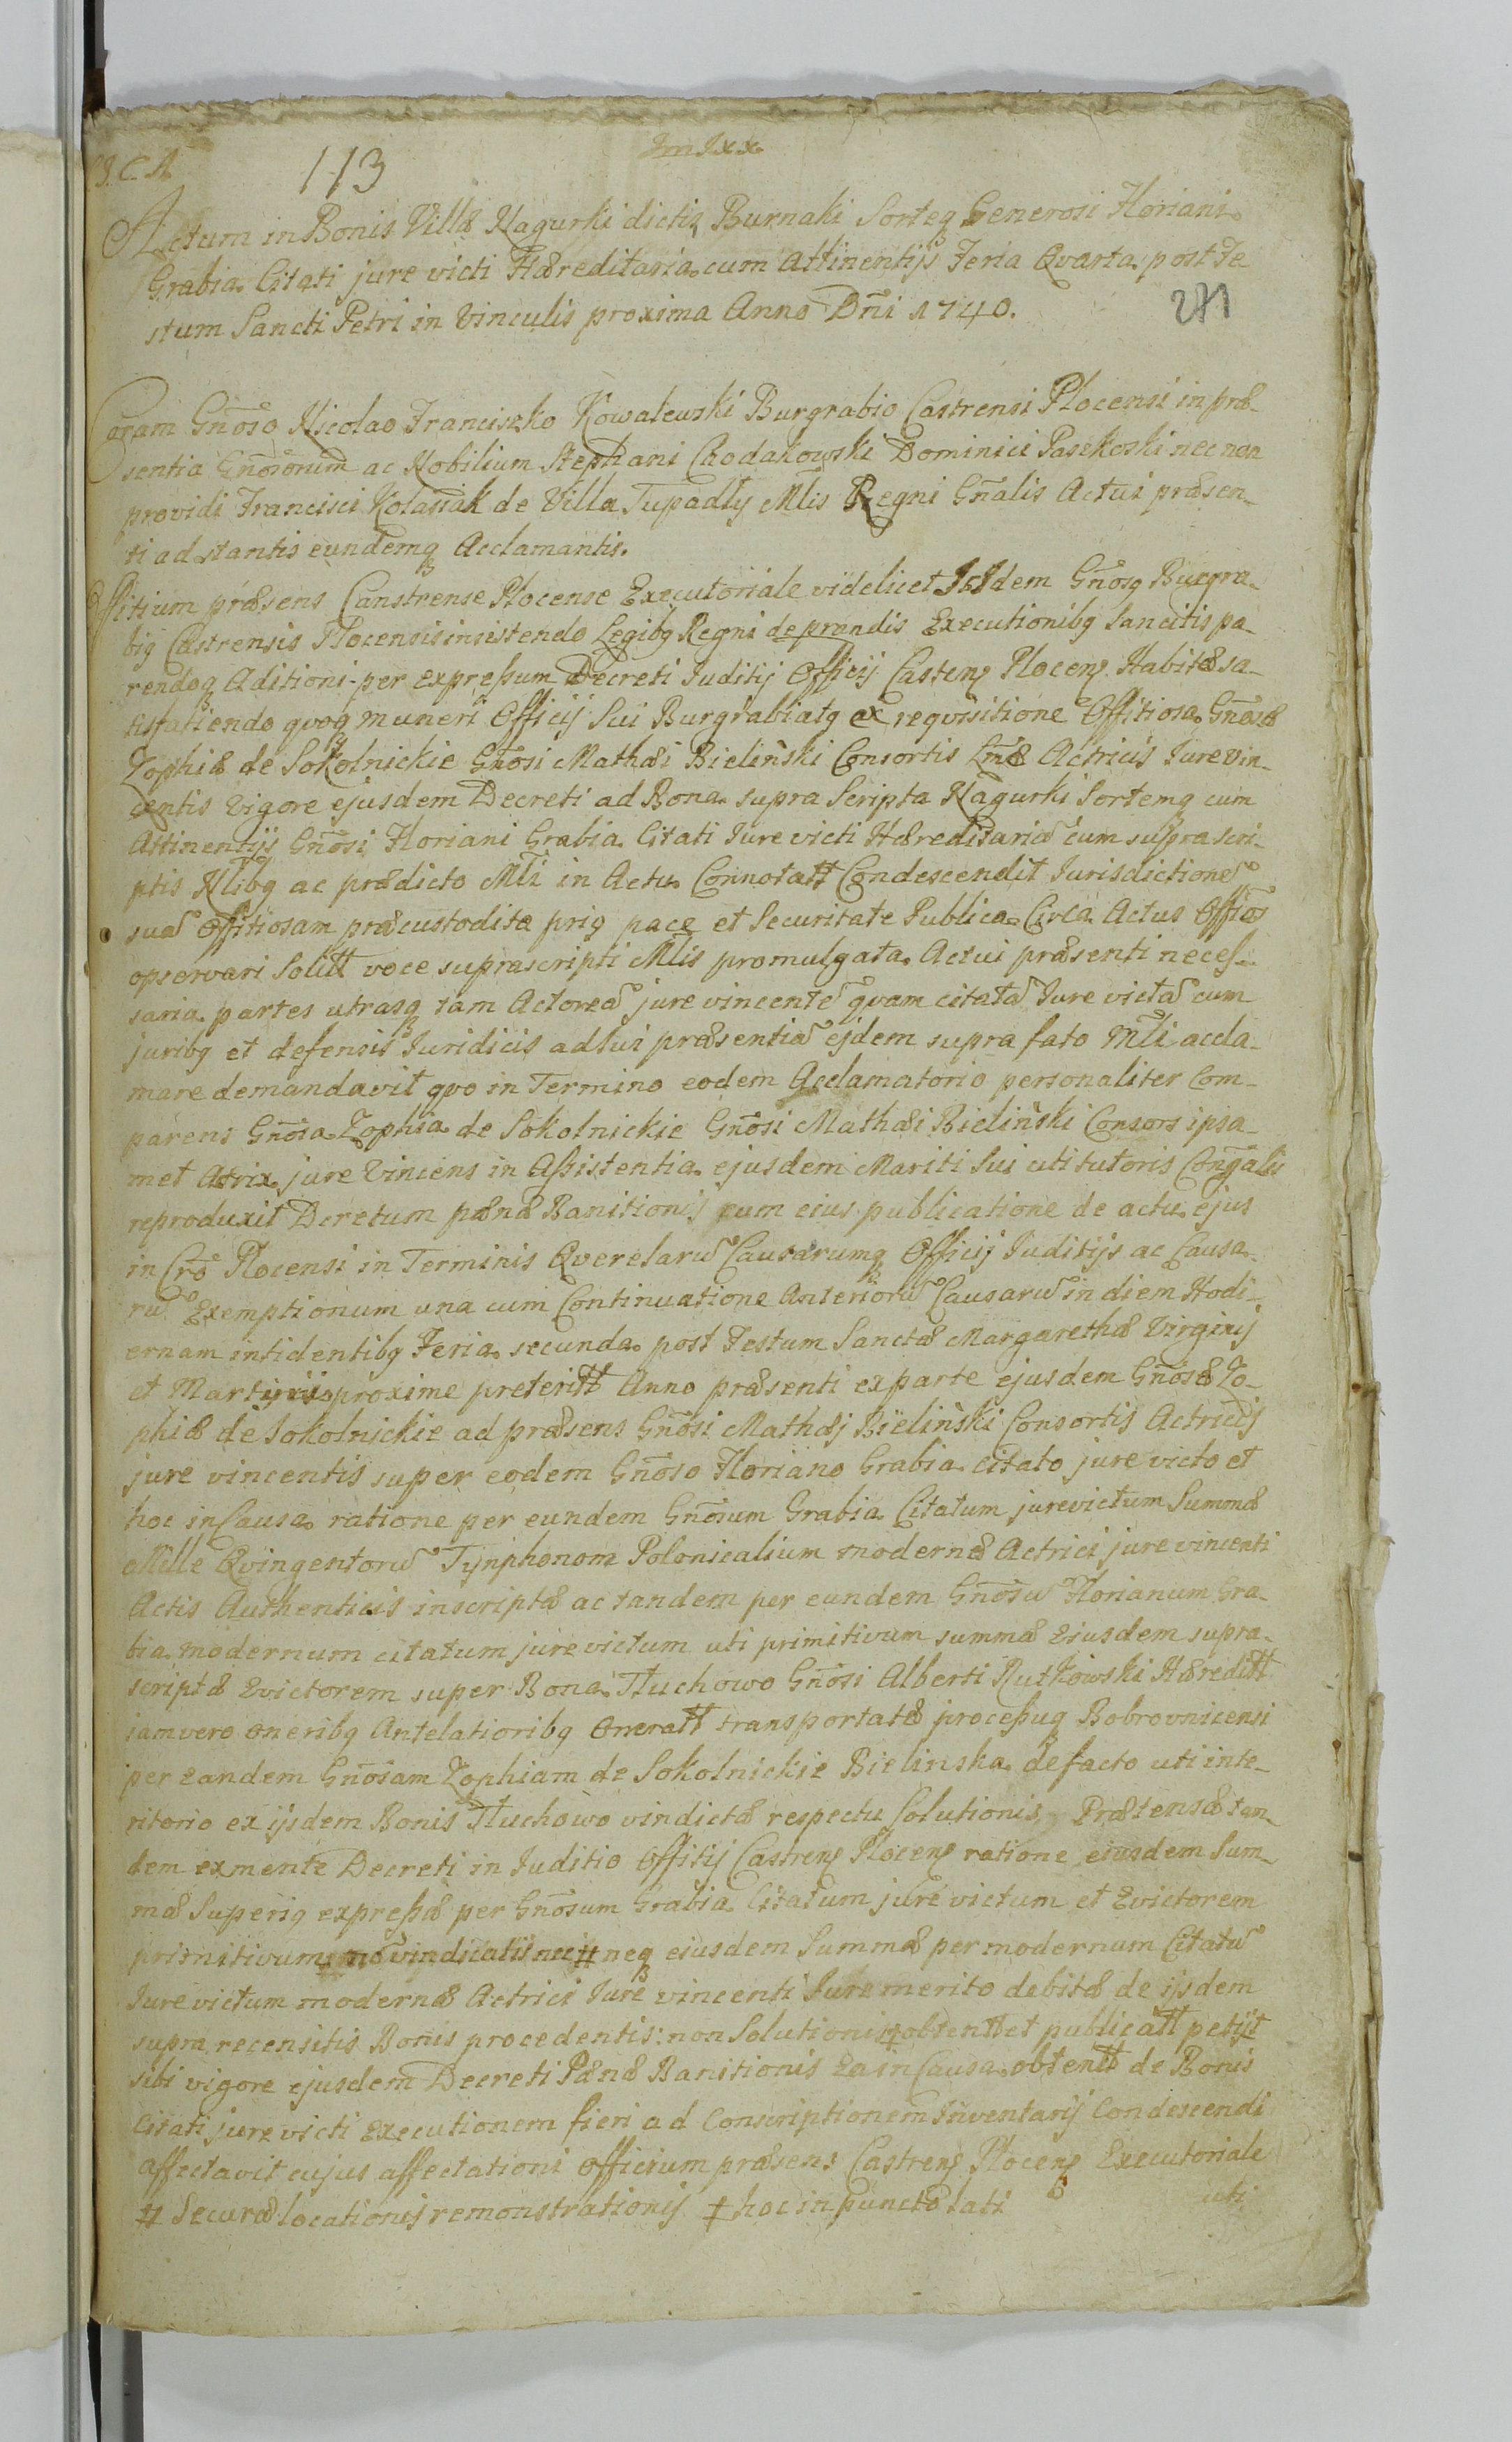 J. C. A.
113
Actum in Bonis Villæ Nagurki dictis Burnaki Sorteq Generosi Floriani
Grabia Citati jure victi Hæreditaria cum Attinentijs Feria Qvarta post Fe
stum Sancti Petri in Vinculis proxima Anno Dñi 1740.
271
Coram Gñoso Nicolao Franciszko Kowalewski Burgrabio Castrensi Plocensi in præ-
sentia Gñosorum ac Nobilium Stephani Chodakowski Dominici Paszkoski nec non
providi Francisci Kolasiak de Villa Tupadly Mlis Regni Gñalis Actui præsen-
ti adstantis eundemq Acclamantis.
Offitium præsens Canstrense Plocense Executoriale videlicet Idem Gñosq Burgra-
biq Castrensis Plocensis insistendo Legibq Regni de prandis Executionibq Sancitis pa-
rendoq Aditioni per expressum Decreti Juditij Officij Castens Plocens Habitæ sa-
tisfatiendo qvoq muneri Officij Sui Burgrabiatq ex reqvisitione Offitiosa Gñosæ
Zophiæ de Sokolnickie Gñosi Mathæi Bielinski Consortis Lmæ Actricis Jure vin-
centis vigore ejusdem Decreti ad Bona supra Scripta Nagurki Sortemq cum
Attinentijs Gñosi Floriani Grabia Citati Jure victi Hæreditaria cum supra scri-
ptis Nlibq ac prædicto Mli in Actu Connotatt Condescendit Jurisdictione
sua Offitiosam præcustodita priq pace et Securitate Publica Circa Actus Offios
opservari Solitt voce suprascripti Mlis promulgata Actui præsenti neces-
saria partes utrasq tam Actorea jure vincente qvam citata Jure victa cum
juribq et defensis Juridicis ad sui præsentia ejdem supra fato Mli accla-
mare demandavit qvo in Termino eodem Acclamatorio personaliter Com-
parens Gñosa Zophia de Sokolnickie Gñosi Mathæi Bielinski Consors ipsa-
met Atrix jure Vincens in Assistentia ejusdem Mariti Sui uti tutoris Congalis
reproduxit Decretum pænæ Banitionis cum eius publicatione de actu ejus
in Cro Plocensi in Terminis Qverelaru Causarumq Officij Juditijs ac Causa-
ru Exemptionum una cum Continuatione Anterioru Causaru in diem Hodi-
ernam intidentibq Feria secunda post Festum Sanctæ Margarethæ Virginij
et Martyris proxime preteritt Anno præsenti ex parte ejusdem Gñosæ Zo-
phiæ de Sokolnickie ad præsens Gñosi Mathæj Bielinski Consortis Actricis
jure vincentis super eodem Gñoso Floriano Grabia citato jure victo et
hoc in Causa ratione per eundem Gñosum Grabia Citatum jurevictum Summæ
Mille Qvingentoru Tynphonom Polonicalium modernæ Actrici jure vincenti
Actis Authenticis inscriptæ ac tandem per eundem Gñosu Florianum Gra-
bia modernum citatum jure victum uti primitivum summæ Eiusdem supra-
scriptæ Evictorem super Bona Tluchowo Gñosi Alberti Rutkowski Hæreditt
iamvero oneribq Antelatioribq Oneratt transportatæ processuq Bobrovnicensi
per eandem Gñosam Zophiam de Sokolnickie Bielinska de facto uti inte-
ritorio ex ijsdem Bonis Tluchowo vindictæ respectu Solutionis Prætensæ tan-
dem exmente Decreti in Juditio Offitij Castrens Plocens ratione eiusdem Sum-
mæ Superiq expressæ per Gñosum Grabia Citatum jure victum et Evictorem
primitivum no vindicatii nec # neq eiusdem Summæ per modernum Citatu
Jure victum modernæ Actrici Jure vincenti Jure merito debitæ de ijsdem
supra recensitis Bonis procedentis: non Solutionis ‡ obtentt et publicatt petijt
sibi vigore ejusdem Decreti Pænæ Banitionis Ea in Causa obtentt de Bonis
Citati jure victi Executionem fieri ad Conscriptionem Inventarij Condescendi
affectavit cujus affectationi officium præsens Castrens Plocens Executoriale
# Securæ locationis remonstrationis ‡ hoc in puncto lati
uti